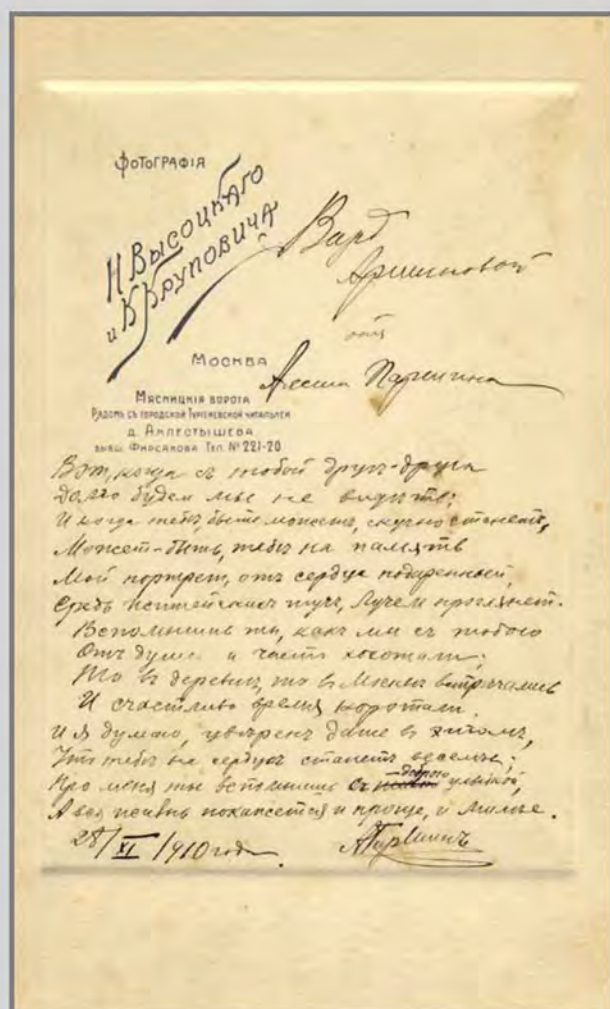 Фотографія
Н Высоцкаго
и К Круповича
Москва
Мясницкія ворота
Рядомъ съ городской Тургеневской читальней
бывш. Фирсанова Тел. № 221-20
Варѣ
Аршиновой
отъ
Паршина
Вот, когда съ тобой другъ-друга
Долго будем мы не видѣть;
И когда тебѣ, быть можетъ, скучно станетъ,
Может-быть, тебѣ на память
Мой портретъ, отъ сердца подаренный,
Средь житейскихъ тучъ, лучемъ проглянетъ.
Вспомнишь ты, какъ мы съ тобою
Отъ души и часто хохотали;
То въ деревнѣ, то в Москвѣ встрѣчались
И счастливо время коротали.
И я думаю, увѣренъ даже в
Что тебѣ на сердцѣ станетъ веселѣе;
Про меня ты вспомнишь съ доброю улыбкой,
А вся жизнь покажется и проще, и милѣе.
28/XI/1910 года.
АПаршинъ